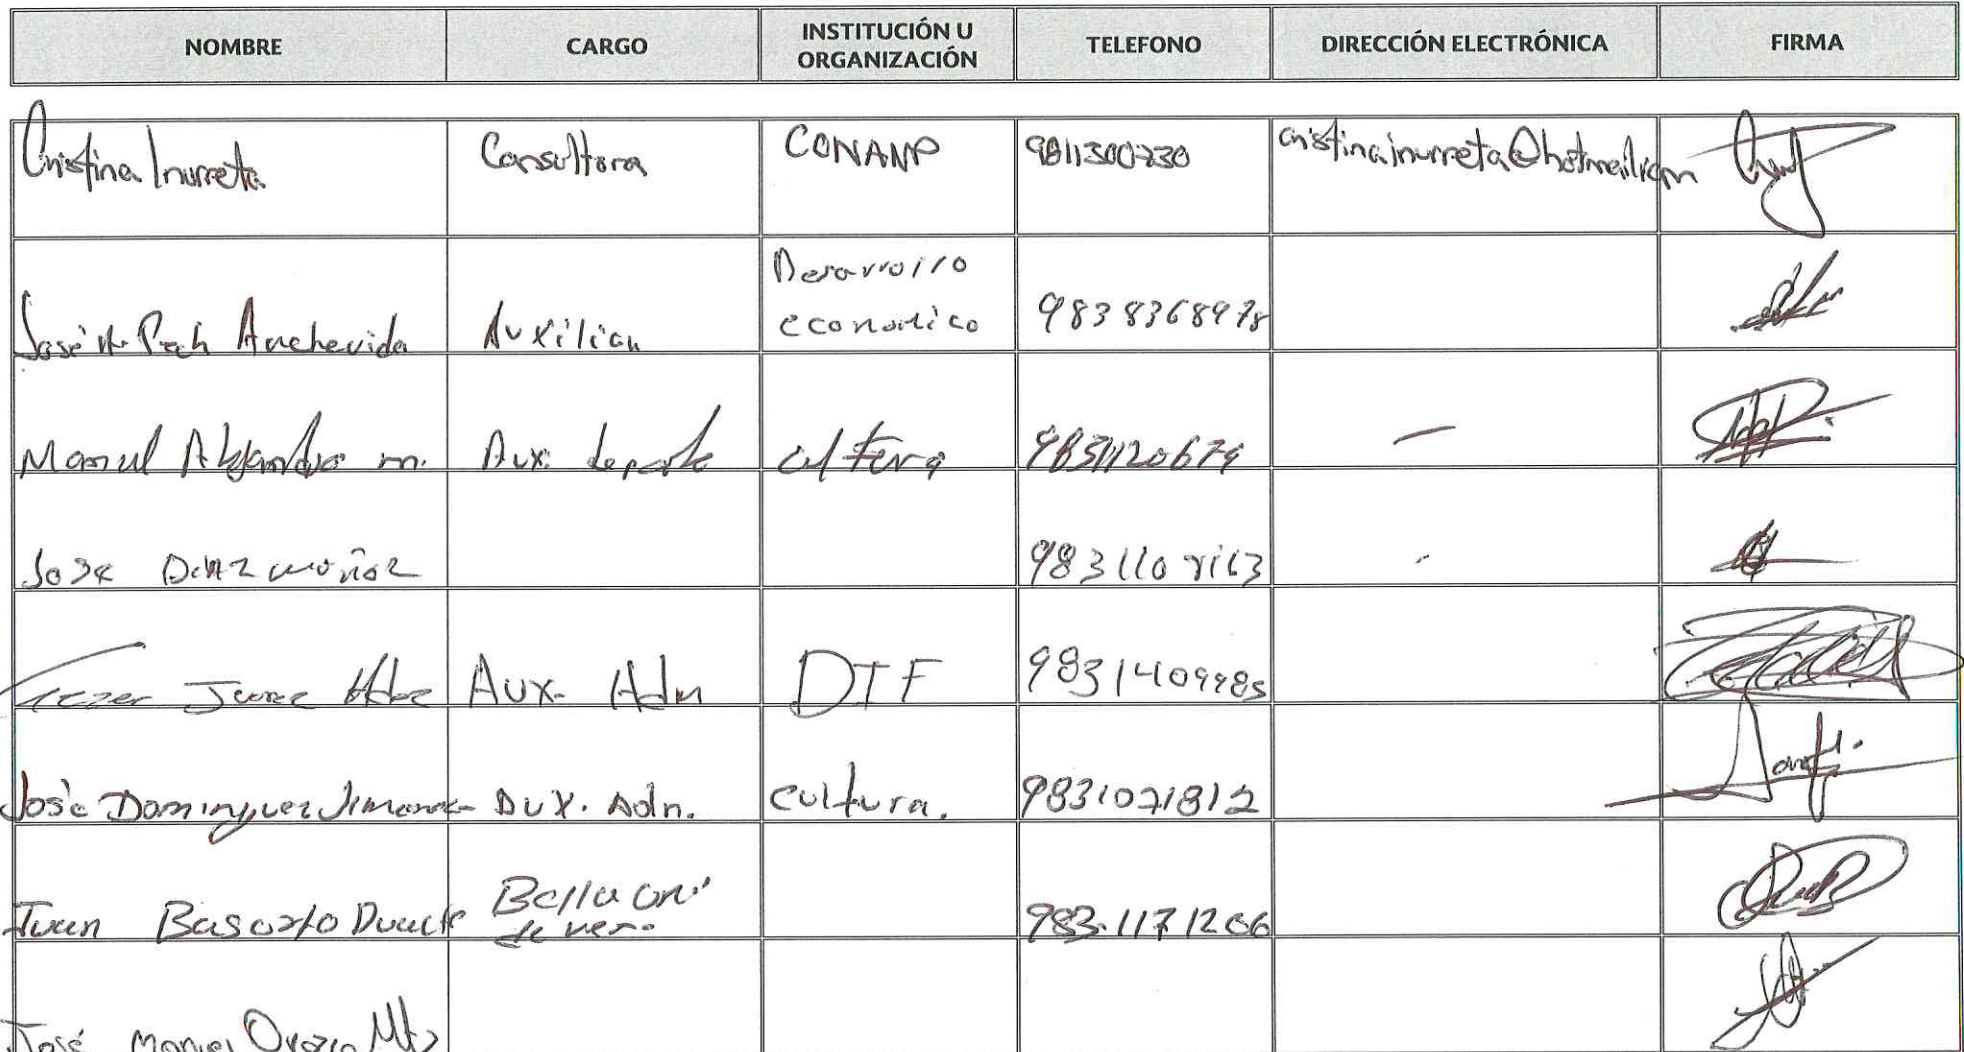 NOMBRE CARGO INSTITUCIÓN U ORGANIZACIÓN TELEFONO DIRECCIÓN ELECTRÓNICA FIRMA
Cristina Inurreta Consultora CONANP 9811300730 cristinainurreta@hotmail.com
José Pech Auxiliar Desarrollo economico 9838368978
Manuel Alejandro m. Aux. deporte cultura 9831120679 —
Jose Diaz muñoz 983110 -
Juarez Hdez Aux. Adm DIF 983140
José Dominguez Jimenez Aux. Adm. cultura. 9831021812
Juan Basorto Duarte 983.1171206
José Manuel Orozco Mtz